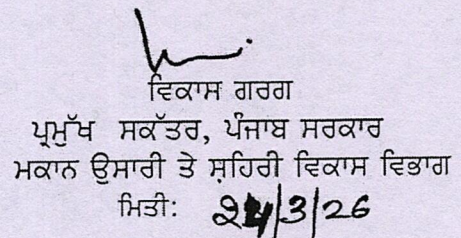 ਵਿਕਾਸ ਗਰਗ
ਪ੍ਰਮੁੱਖ ਸਕੱਤਰ, ਪੰਜਾਬ ਸਰਕਾਰ
ਮਕਾਨ ਉਸਾਰੀ ਤੇ ਸ਼ਹਿਰੀ ਵਿਕਾਸ ਵਿਭਾਗ
ਮਿਤੀ: /3/26